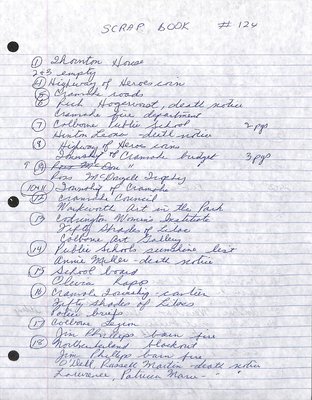 SCRAP BOOK # 124
1 Thornton House
2+3 empty
4 Highway of Heroes coin
5 Cramahe roads
6 Rick Hogervorst, death notice
Cramahe fire department
7 Colborne Public School 2 pgs
Hinton Leona - death notice
8 Highway of Heroes coin
Township of Cramahe budget 3 pgs
9 " "
Ross McDougall Trophy
10+11 Township of Cramahe
12 Cramahe Council
Warkworth Art in the Park
13 Codrington Women's Institute
Fifty Shades of Lilac
Colborne Art Gallery
14 Public Schools sunshine list
Annie Miller - death notice
15 School board
Olivia Rapp
16 Cramahe Township -
Fifty Shades of Lilacs
Police briefs
17 Colborne Legion
Jim Phillips - barn fire
18 Northumberland blackout
Jim Phillips barn fire
O'Dell, Russell Martin - death notice
Lawrence, Patricia Marie - " "